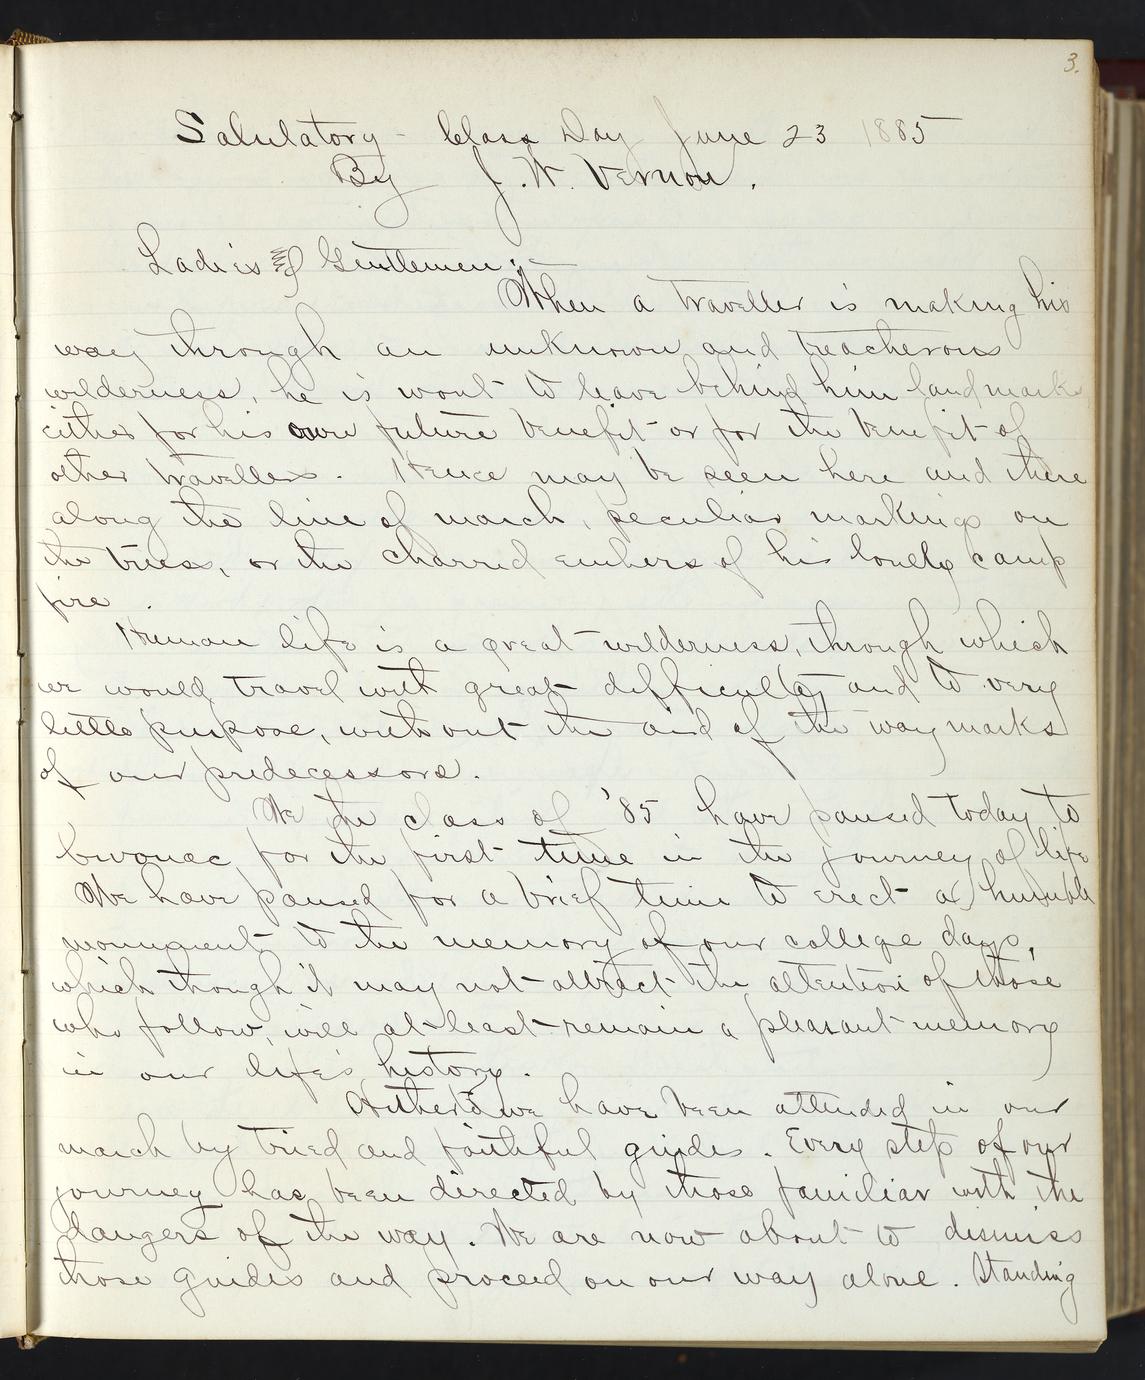 3.
Salulatory - Class Day June 23 1885
By J. W. Vernon.
Ladies & Gentlemen:-
When a traveller is making his
way through an unknown and treacherous
wilderness, he is wont to leave behind him landmarks
either for his own future benefit or for the benefit of
other travellers. Hence may be seen here and there
along the line of march, peculiar markings on
the trees, or the charred embers of his lonely camp
fire.
Human life is a great wilderness, through which
we would travel with great difficulty and to very
little purpose, without the aid of the way marks
of our predecessors.
We the class of '85 have paused today to
bivouac for the first time in the journey of life
We have paused for a brief time to erect a humble
monument to the memory of our college days,
which though it may not attract the attention of those
who follow, will at least remain a pleasant memory
in our life's history.
Hitherto we have been attended in our
march by tried and faithful guides. Every step of our
journey has been directed by those familiar with the
dangers of the way. We are now about to dismiss
those guides and proceed on our way alone. Standing